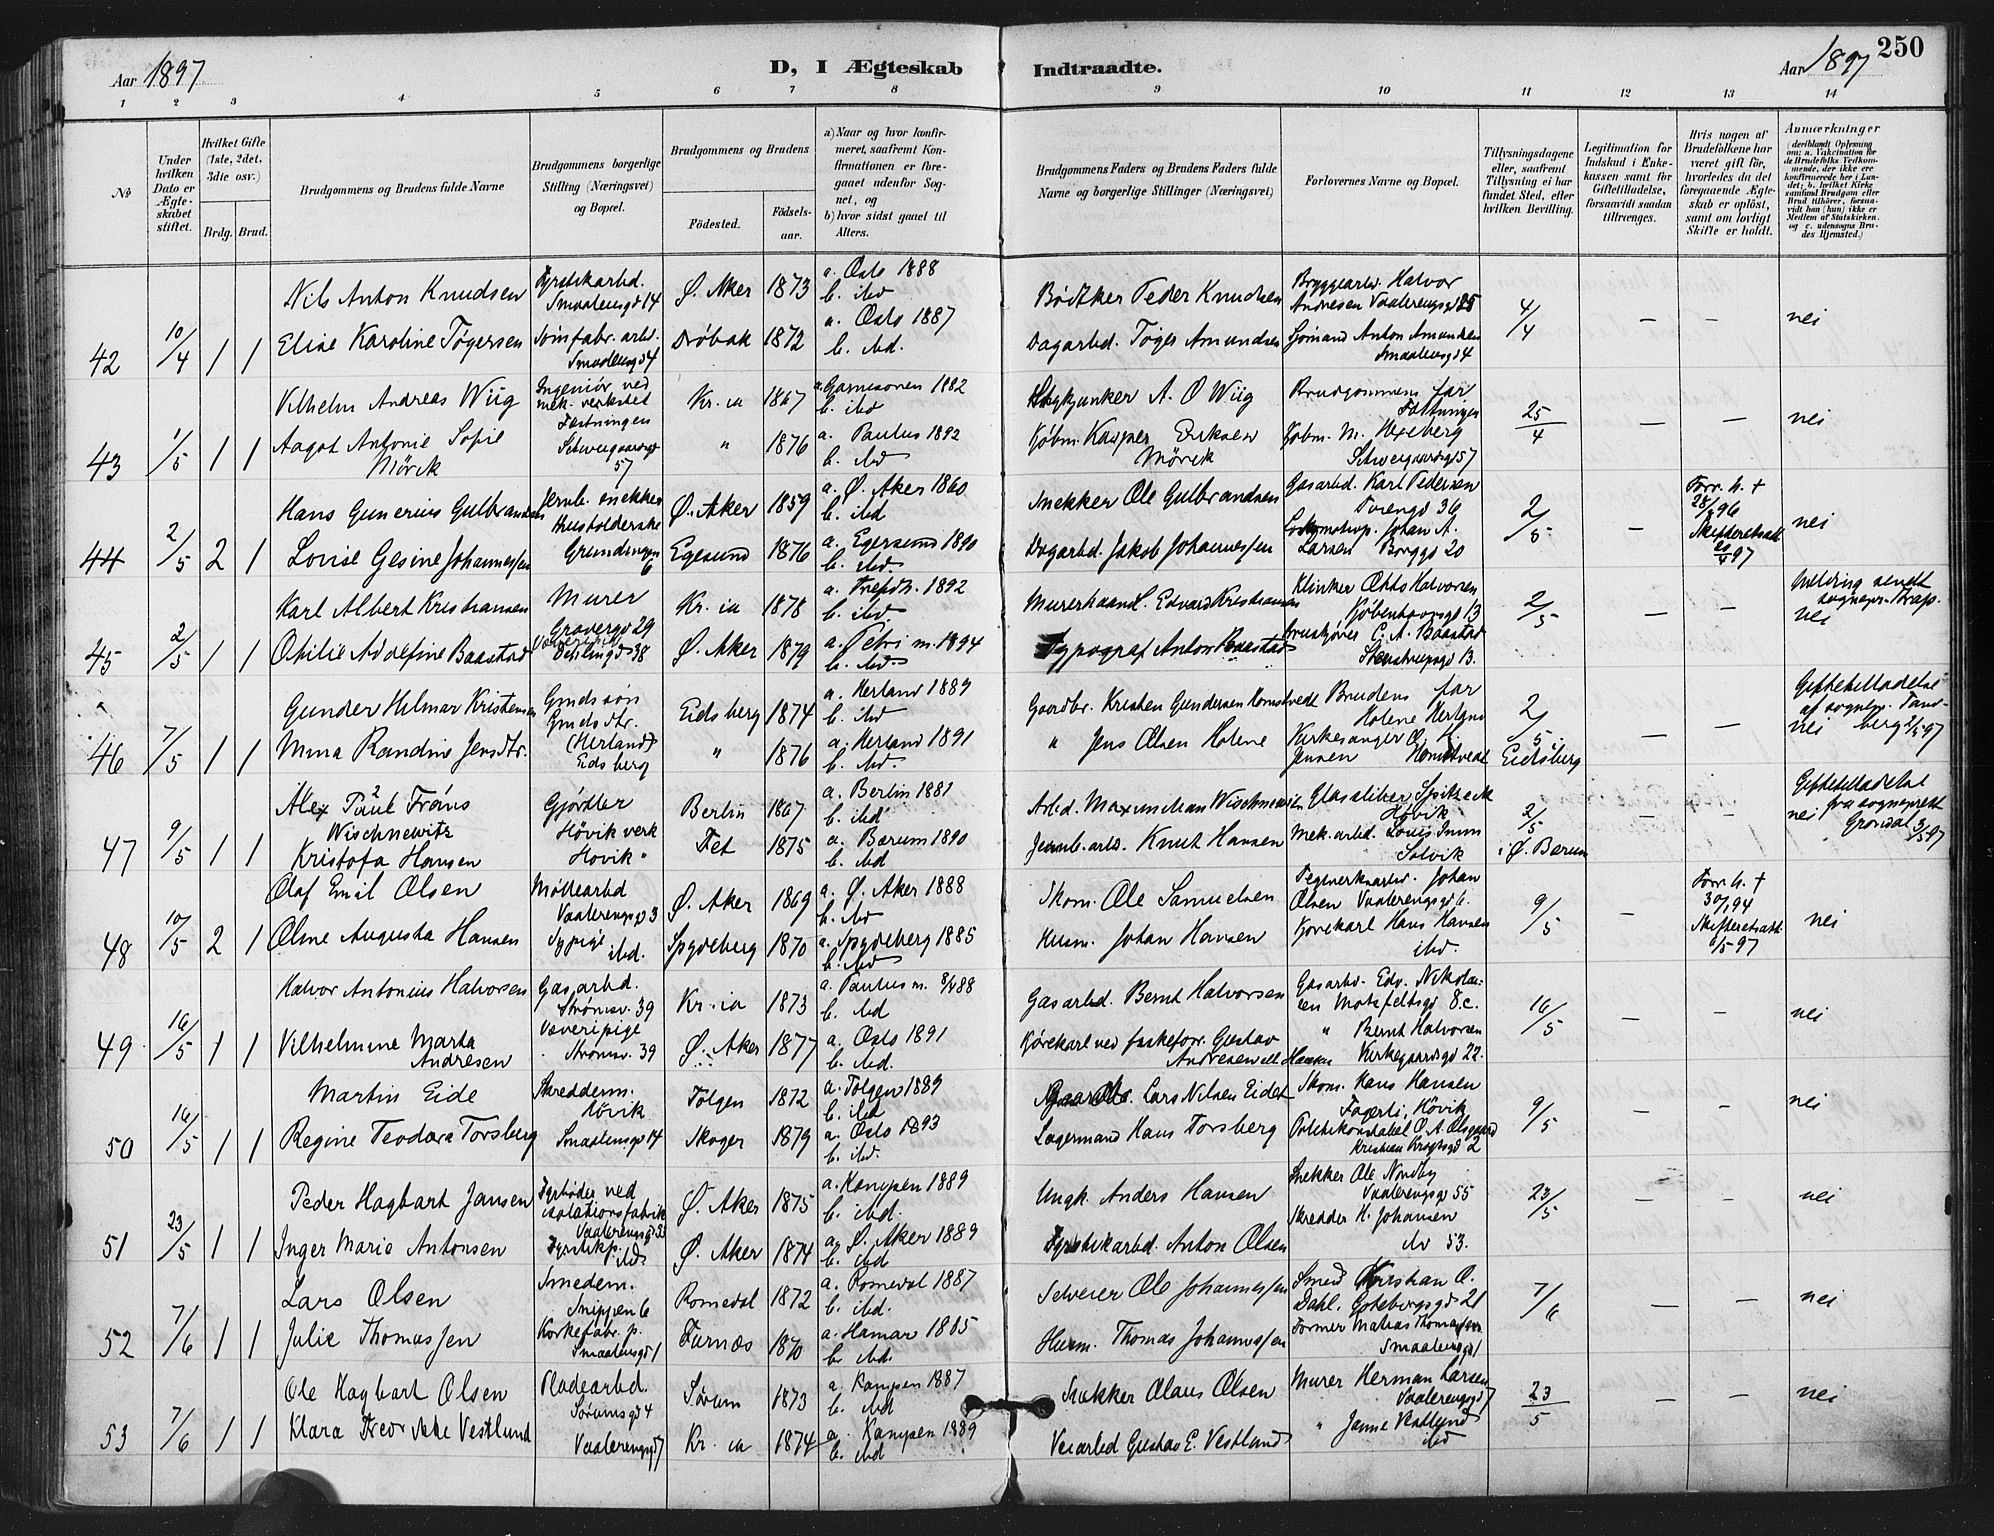 Aar 1897
D, I Ægteskab
Indtraadte.
Aar 1897
250
1 2 3 4 5 6 7 8 9 10 11 12 13 14
No
Under hvilken Dato er Ægteskabet stiftet.
Hvilket Gifte (1ste, 2det, 3die osv.)
Brdg. Brud.
Brudgommens og Brudens fulde Navne
Brudgommens borgerlige Stilling (Næringsvei) og Bopæl.
Brudgommens og Brudens
Fødested.
Fødsels-aar.
a) Naar og hvor konfirmeret, saafremt Konfirmationen er foregaaet udenfor Sognet, og
b) hvor sidst gaaet til Alters.
Brudgommens Faders og Brudens Faders fulde Navne og borgerlige Stillinger (Næringsvei)
Forlovernes Navne og Bopæl.
Tillysningsdagene eller, saafremt Tillysning ei har fundet Sted, efter hvilken Bevilling.
Legitimation for Indskud i Enkekassen samt for Giftetilladelse, forsaavidt saadan tiltrænges.
Hvis nogen af Brudefolkene har været gift før, hvorledes da det foregaaende Ægteskab er opløst, samt om lovligt Skifte er holdt.
Anmærkninger
42 10/4 1 1
Nils Anton Knudsen
Smaalensgd 14
Ø. Aker 1873
a. Oslo 1888
b. ibd
Bødker Peder Knudsen
Bryggearbd. Halvor Andresen Vaalerengsgd 25
4/4 — — nei
Elise Karoline Tøgersen
Smaalensgd 4
Drøbak 1872
a. Oslo 1887
b. ibd.
Dagarbd. Tøger Amundsen
Sjømand Anton Amundsen
Smaalensgd 4
43 1/5 1 1
Vilhelm Andreas Wiig
Ingeniør ved mek. verksted Fæstningen
Kr.ia 1867
a. Garnisonen 1882
b. ibd
A. O Wiig
Brudgommens far
Fæstningen
25/4 — — nei
Aagot Antonie Sofie Mørck
Schweigaardsgd 57
" 1876
a. Paulus 1892
b. ibd
Kjøbm. Kasper Eriksen Mørck
Kjøbm. M. Hexeberg
Schweigaardsgd 57
44 2/5 2 1
Hans Gunerius Gulbrandsen
Ø. Aker 1859
b. ibd
Snekker Ole Gulbrandsen
Gasarbd. Karl Pedersen
36
2/5 — Forr. h. +
nei
Lovise Gesine Johannessen
Egesund 1876
a. Egersund 1890
b. ibd.
Dagarbd. Jakob Johannessen
Johan A. Larsen Borggd 20
45 2/5 1 1
Karl Albert Kristiansen
Murer
Gravergd 29
Kr.ia 1878
a. Trefdh. 1892
b. ibd.
Murerhaandl. Edvard Kristiansen
Halvorsen
Kjøbenhavnsgd 13
2/5 — — nei
Melding sendt sognepr. Trap.
Othilie Adolfine Baastad
38
Ø. Aker 1879
a. Petri m. 1894
b. ibd.
Typograf Anton Baastad
C. A. Baastad
Stenstrupsgd 13.
46 7/5 1 1
Gunder Hilmar Kristensen
Gmdssøn
Eidsberg 1874
a. Herland 1889
b. ibd
Gaardbr. Kristen Gundersen Homstvedt
Brudens far
Holene Herland
2/5. i Eidsberg — —
nei
Giftetilladelse af sognepr. Tandberg 2/5 97
Mina Randine Jensdtr.
Gmdsdtr.
(Herland)
Eidsberg
" 1876
a. Herland 1891
b. ibd.
" Jens Olsen Holene
Kirkesanger O. H. Jensen Homstvedt
47 9/5 1 1
Alex Paul Frans Wischnewitz
Gjørtler
Høvik verk
Berlin 1867
a. Berlin 1881
b. ibd
Arbd. Maximilian Wischnewitz
Glassliber Spitzeck
Høvik
2/5 i Ø. Bærum — —
nei
Giftetilladelse fra sogneprest Grøndal 3/5 97
Kristofa Hansen
Høvik "
Fet 1875
a. Bærum 1890
b. ibd
Jernb. arb. Knut Hansen
Mek. arbd. Louis Imm
Solvik
48 10/5 2 1
Olaf Emil Olsen
Møllearbd
Vaalerengsgd 3
Ø. Aker 1869
a. Ø. Aker 1888
b. ibd
Skom. Ole Samuelsen
Teglverksarbd. Johan Olsen Vaalerengsgd 6.
9/5 — Forr. h. +
Skifteretsatt.
nei
Oline Augusta Hansen
Sypige ibd.
Spydeberg 1870
a. Spydeberg 1885
b. ibd
Husm. Johan Hansen
Kjørekarl Hans Hansen ibd.
49 16/5 1 1
Halvor Antonius Halvorsen
Gasarbd.
Strømsv. 39
Kr.ia 1873
a. Paulus m. 8/4 88
b. ibd
Gasarbd. Bernt Halvorsen
Gasarbd. Edv. Nikolaisen Motzfeltsgd 8.c.
16/5 — — nei
Vilhelmine Marta Andresen
Væverpige
Strømsv. 39
Ø. Aker 1877
a. Oslo 1891
b. ibd.
Kjørekarl ved Gustav Andresen ell Hansen
" Bernt Halvorsen
Kirkegaardsgd 22.
50 16/5 1 1
Martin Eide
Skredderm.
Høvik
Tolgen 1872
a. Tolgen 1889
b. ibd
Lars Nilsen Eidet
Skom. Hans Hansen
Fagerli, Høvik
9/5 — — nei
Regine Teodora Torsberg
Smaalensgd 14
Skoger 1879
a. Oslo 1893
b. ibd.
Lagermand Hans Torsberg
Politikonstabel O. A. Olsgaard
Kristian Kroghsgd 2
51 23/5 1 1
Peder Hagbart Jansen
Fyrbøder ved isolationsfabrik
Ø. Aker 1875
a. Kampen 1889
b. ibd.
Ungk. Anders Hansen
Snekker Ole Nordby
Vaalerengsgd 55
23/5 — — nei
Inger Marie Antonsen
Ø. Aker 1874
a. Ø. Aker 1889
b. ibd
Fyrstikarbd. Anton Olsen
Skredder H. Johansen
ibd 53.
52 7/6 1 1
Lars Olsen
Smedem.
Snippen 6
Romedal 1872
a. Romedal 1887
b. ibd.
Selveier Ole Johannessen
Smed Kristian O. Dahl. Gøteborgsgd 21
7/6 — — nei
Julie Thomassen
Korkefabr. p.
Smaalensgd 1
Furnæs 1870
a. Hamar 1885
b. ibd.
Husm. Thomas Johannessen
Former Matias Thomassen
Smaalensgd 1
53 7/6 1 1
Ole Hagbart Olsen
Pladearbd.
Sørumsgd 4
Sørum 1873
a. Kampen 1887
b. ibd
Snekker Olaus Olsen
Murer Herman Larsen
Vaalerengsgd 7
23/5 — — nei
Klara Fredrikke Vestlund
Vaalerengsgd 7
Kr.ia 1874
a. Kampen 1889
b. ibd
Veiarbed Gustav E. Vestlund
" Janne Vestlund
ibd